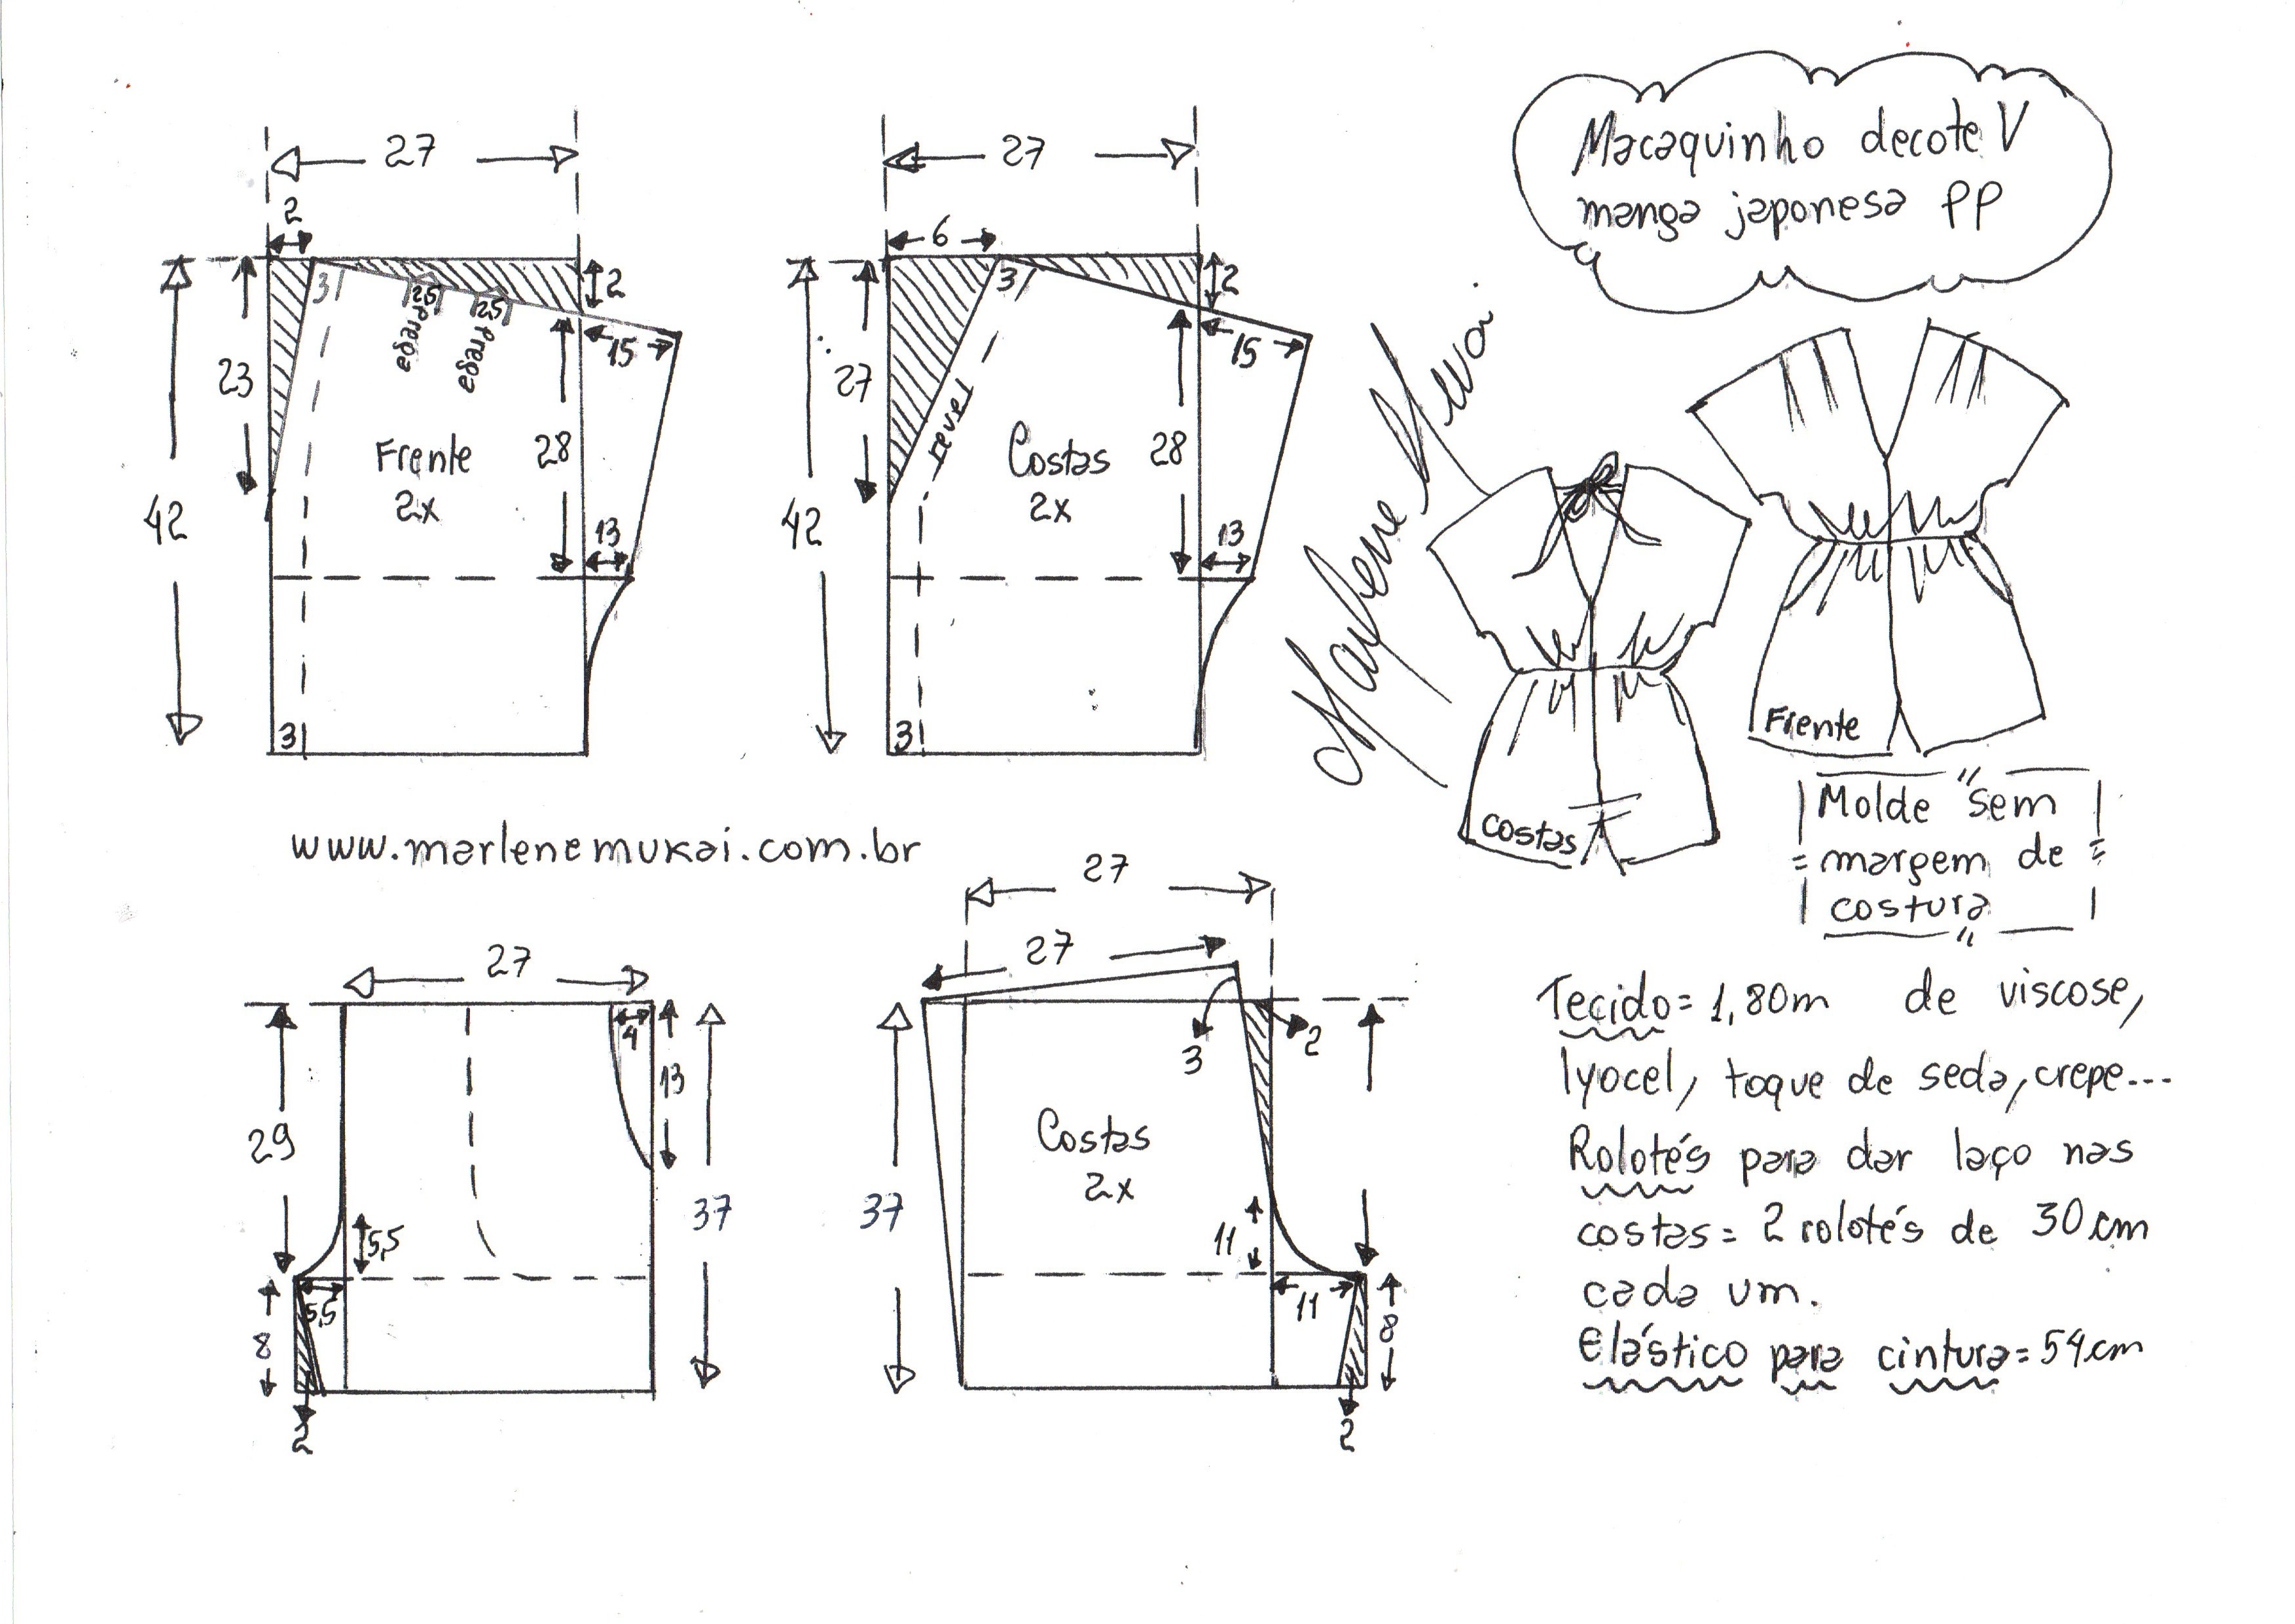 Macaquinho decote V
manga japonesa PP
27
2
3
2,5
prega
2,5
prega
2
15
23
42
28
13
Frente
2x
3
27
6
3
2
15
27
42
28
13
revel
Costas
2x
3
Marlene Mukai
Frente
costas
Molde "sem
margem de
costura"
www.marlenemukai.com.br
27
4
13
29
37
5,5
5,5
8
2
27
27
3
2
37
Costas
2x
11
11
8
2
Tecido= 1,80m de viscose,
lyocel, toque de seda, crepe...
Rolotés para dar laço nas
costas= 2 rolotés de 30cm
cada um.
Elástico para cintura=54cm